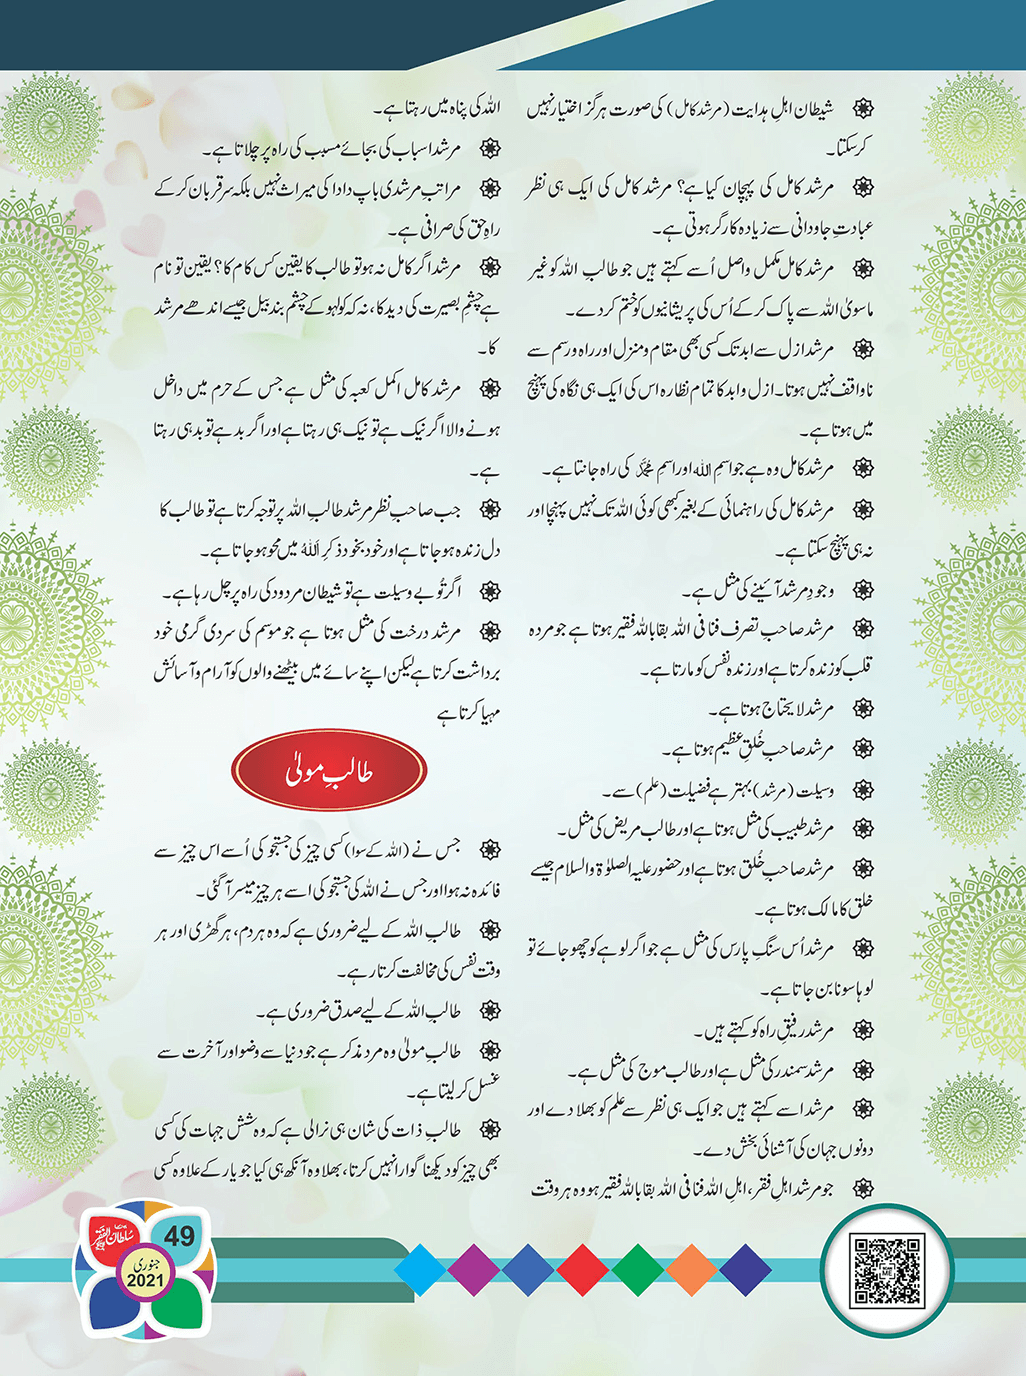 شیطان اہلِ ہدایت (مرشد کامل) کی صورت ہرگز اختیار نہیں
کر سکتا۔
مرشد کامل کی پہچان کیا ہے؟ مرشد کامل کی ایک ہی نظر
عبادتِ جاودانی سے زیادہ کارگر ہوتی ہے۔
مرشد کامل مکمل واصل اُسے کہتے ہیں جو طالبِ اللہ کو غیر
ماسویٰ اللہ سے پاک کر کے اُس کی پریشانیوں کو ختم کر دے۔
مرشد ازل سے ابد تک کسی بھی مقام و منزل اور راہ و رسم سے
ناواقف نہیں ہوتا۔ ازل و ابد کا تمام نظارہ اس کی ایک ہی نگاہ کی پہنچ
میں ہوتا ہے۔
مرشد کامل وہ ہے جو اسمِ اللہ اور اسمِ محمدؐ کی راہ جانتا ہے۔
مرشد کامل کی راہنمائی کے بغیر کبھی کوئی اللہ تک نہیں پہنچا اور
نہ ہی پہنچ سکتا ہے۔
وجودِ مرشد آئینے کی مثل ہے۔
مرشد صاحبِ تصرف فنا فی اللہ بقا باللہ فقیر ہوتا ہے جو مردہ
قلب کو زندہ کرتا ہے اور زندہ نفس کو مارتا ہے۔
مرشد لایحتاج ہوتا ہے۔
مرشد صاحبِ خُلقِ عظیم ہوتا ہے۔
وسیلت (مرشد) بہتر ہے فضیلت (علم) سے۔
مرشد طبیب کی مثل ہوتا ہے اور طالب مریض کی مثل۔
مرشد صاحبِ خُلق ہوتا ہے اور حضور علیہ الصلوٰۃ والسلام جیسے
خلق کا مالک ہوتا ہے۔
مرشد اُس سنگِ پارس کی مثل ہے جو اگر لوہے کو چھو جائے تو
لوہا سونا بن جاتا ہے۔
مرشد رفیقِ راہ کو کہتے ہیں۔
مرشد سمندر کی مثل ہے اور طالب موج کی مثل ہے۔
مرشد اسے کہتے ہیں جو ایک ہی نظر سے علم کو بھلا دے اور
دونوں جہان کی آشنائی بخش دے۔
جو مرشد اہلِ فقر، اہلِ اللہ فنا فی اللہ بقا باللہ فقیر ہو وہ ہر وقت
اللہ کی پناہ میں رہتا ہے۔
مرشد اسباب کی بجائے مسبب کی راہ پر چلاتا ہے۔
مراتبِ مرشدی باپ دادا کی میراث نہیں بلکہ سر قربان کر کے
راہِ حق کی صرافی ہے۔
مرشد اگر کامل نہ ہو تو طالب کا یقین کس کام کا؟ یقین تو نام
ہے چشمِ بصیرت کی دید کا، نہ کہ کولہو کے چشم بند بیل جیسے اندھے مرشد
کا۔
مرشد کامل اکمل کعبہ کی مثل ہے جس کے حرم میں داخل
ہونے والا اگر نیک ہے تو نیک ہی رہتا ہے اور اگر بد ہے تو بد ہی رہتا
ہے۔
جب صاحبِ نظر مرشد طالبِ اللہ پر توجہ کرتا ہے تو طالب کا
دل زندہ ہو جاتا ہے اور خود بخود ذکرِ اللہ میں محو ہو جاتا ہے۔
اگر تُو بے وسیلت ہے تو شیطان مردود کی راہ پر چل رہا ہے۔
مرشد درخت کی مثل ہوتا ہے جو موسم کی سردی گرمی خود
برداشت کرتا ہے لیکن اپنے سائے میں بیٹھنے والوں کو آرام و آسائش
مہیا کرتا ہے
طالبِ مولیٰ
جس نے (اللہ کے سوا) کسی چیز کی جستجو کی اُسے اس چیز سے
فائدہ نہ ہوا اور جس نے اللہ کی جستجو کی اسے ہر چیز میسر آ گئی۔
طالبِ اللہ کے لیے ضروری ہے کہ وہ ہر دم، ہر گھڑی اور ہر
وقت نفس کی مخالفت کرتا رہے۔
طالب اللہ کے لیے صدق ضروری ہے۔
طالبِ مولیٰ وہ مرد مذکر ہے جو دنیا سے وضو اور آخرت سے
غسل کر لیتا ہے۔
طالب ذات کی شان ہی نرالی ہے کہ وہ شش جہات کی کسی
بھی چیز کو دیکھنا گوارا نہیں کرتا، بھلا وہ آنکھ ہی کیا جو یار کے علاوہ کسی
سلطان الفقر
49
جنوری
2021